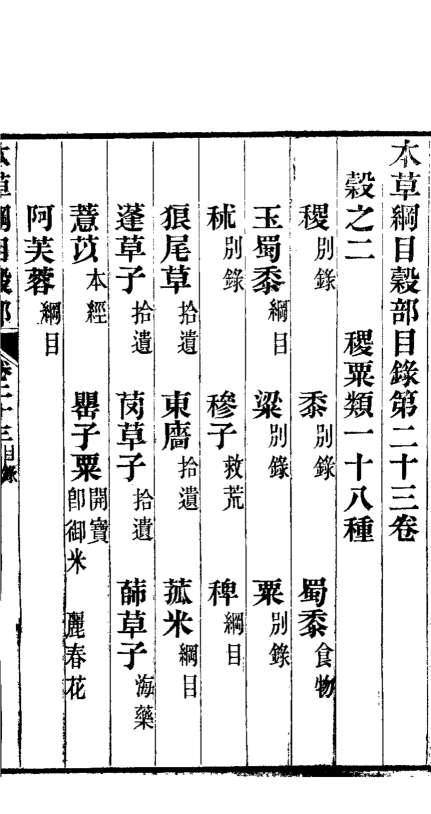 本草綱目穀部目錄第二十三卷
穀之二 稷粟類一十八種
稷別錄 黍別錄 蜀黍食物
玉蜀黍綱目 粱別錄 粟別錄
秫別錄 穇子救荒 稗綱目
狼尾草拾遺 東廧拾遺 菰米綱目
蓬草子拾遺 䒽草子拾遺 蒒草子海藥
薏苡本經 罌子粟開寶即御米 麗春花
阿芙蓉綱目
本草綱目穀部 卷二十三目錄